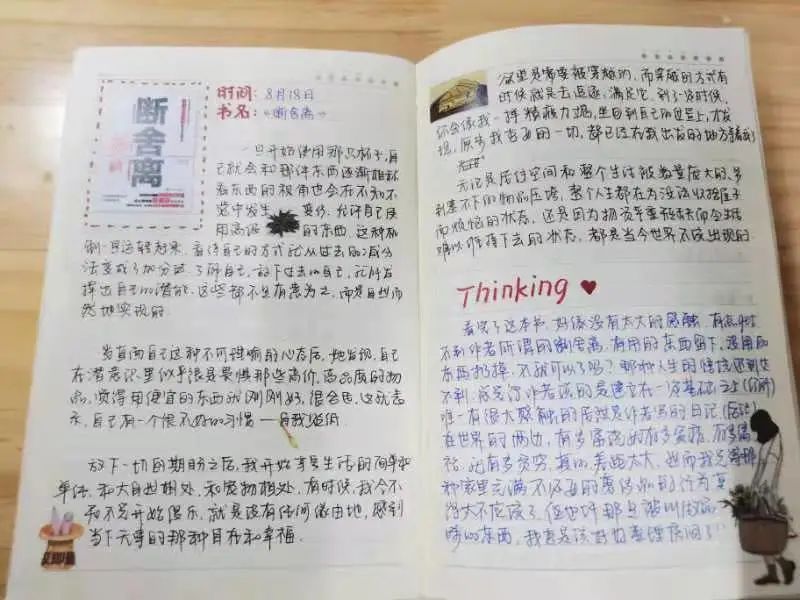 断舍离
时间: 8月18日
书名:《断舍离》
一旦开始使用那只杯子,自
己就会和那件东西逐渐相称
看东西的视角也会在不知不
觉中发生 变化。允许自己使
用高级 的东西,这种机
制一旦运转起来,看待自己的方式就从过去的减分
法变成了加分法。了解自己,放下过去的自己,就能发
挥出自己的潜能。这些都不是有意为之,而是自然而
然地实现的。
当直面自己这种不可理喻的心态后,她发现,自己
在潜意识里似乎很是畏惧那些高价、高品质的物
品,觉得用便宜的东西就刚刚好,很合适。这就表
示,自己有一个很不好的习惯——自我贬低
放下一切的期盼之后,我开始享受生活的简单和
单纯,和大自然相处,和宠物相处,有时候,我会不
知不觉开始快乐,就是没有任何缘由地,感到
当下元零的那种自在和幸福。
你里是需要被穿越的,而穿越的方式有
时候就是去追逐,满足它。到了一定时候,
你会像我一样精疲力竭,坐回到自己的位置上,才发
现,原来我想要的一切,都已经在我出发的地方等着我了
无论是居住空间和整个生活被数量庞大的、多
到塞不下的物品压垮,整个人生都在为没法收拾屋子
而烦恼的状态,还是因为物资严重短缺而令生活
难以维持下去的状态,都是当今世界不该出现的。
Thinking ♥
看完了这本书,好像没有太大的感触,有点get
不到作者所谓的断舍离,有用的东西留下,没用的
东西扔掉,不就可以了吗?那和人生的信念还到达
不到,或是说作者谈的是建立在一定基础之上
唯一有很大感触的居然是作者写的日记(后记)
在世界的两边,有多富范的有多贫瘠,有多富
裕,就有多贫穷,真的,差距太大,然而我觉得那
种家里充满不必要的奢侈品的行为真
得大不应该了,但也许那只能叫做品
啼的东西,我想是该好好整理房间了